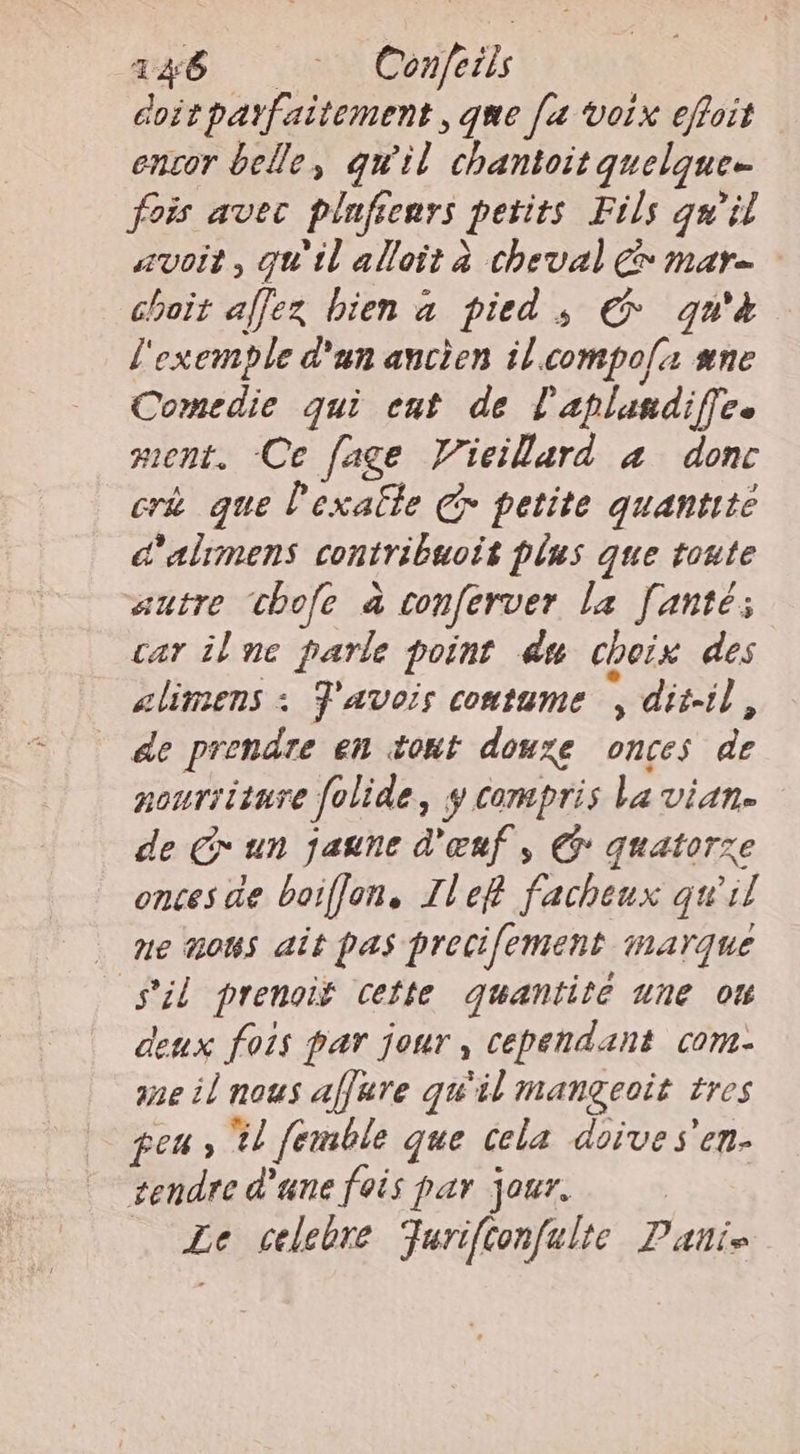 146 Conſeils
doit parfaitement, que ſa voix eſtoit
encor belle, qu'il chantoit quelque-
fois avec pluſieurs petits Fils qu'il
avoit, qu'il alloit à cheval & mar-
choit aſſez bien à pied, & qu'à
l'exemple d'un ancien il compoſa une
Comedie qui eut de l'aplaudiſſe-
ment. Ce ſage Vieillard a donc
crû que l'exacte & petite quantité
d'alimens contribuoit plus que toute
autre choſe à conſerver la ſanté;
car il ne parle point du choix des
alimens : J'avois coutume, dit-il,
de prendre en tout douze onces de
nourriture ſolide, y compris la vian-
de & un jaune d'œuf, & quatorze
onces de boiſſon. Il eſt facheux qu'il
ne nous ait pas preciſement marqué
s'il prenoit cette quantité une ou
deux fois par jour, cependant com-
me il nous aſſure qu'il mangeoit tres
peu, il ſemble que cela doive s'en-
tendre d'une fois par jour.
Le celebre Juriſconſulte Pani-